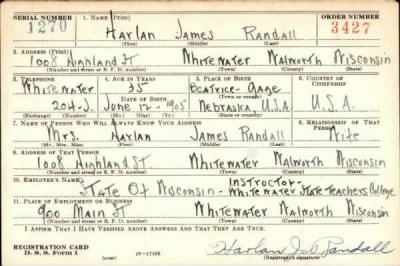 SERIAL NUMBER 1. NAME (Print) ORDER NUMBER
1270 Harlan James Randall 3427
(First) (Middle) (Last)
2. ADDRESS (Print)
1008 Highland St Whitewater Walworth Wisconsin
(Number and street or R. F. D. number) (Town) (County) (State)
3. TELEPHONE 4. AGE IN YEARS 5. PLACE OF BIRTH 6. COUNTRY OF CITIZENSHIP
Whitewater 35 Beatrice-Gage
DATE OF BIRTH (Town) (County)
204-J. June 12 - 1905 Nebraska, U.S.A U.S.A.
(Exchange) (Number) (Mo.) (Day) (Yr.) (State or country)
7. NAME OF PERSON WHO WILL ALWAYS KNOW YOUR ADDRESS 8. RELATIONSHIP OF THAT PERSON
Mrs. Harlan James Randall Wife
(Mr., Mrs., Miss) (First) (Middle) (Last)
9. ADDRESS OF THAT PERSON
1008 Highland St Whitewater Walworth Wisconsin
(Number and street or R. F. D. number) (Town) (County) (State)
10. EMPLOYER'S NAME Instructor-
State Of Wisconsin - Whitewater State Teachers College
11. PLACE OF EMPLOYMENT OR BUSINESS
900 Main St Whitewater Walworth Wisconsin
(Number and street or R. F. D. number) (Town) (County) (State)
I AFFIRM THAT I HAVE VERIFIED ABOVE ANSWERS AND THAT THEY ARE TRUE.
REGISTRATION CARD Harlan Randall
D. S. S. Form 1 (over) 16-17105 (Registrant's signature)